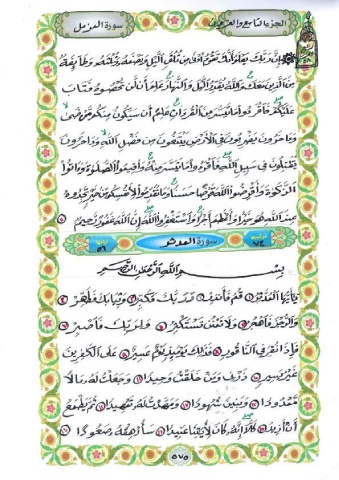 الجزء التاسع والعشرون سورة المزمل
إن ربك يعلم أنك تقوم أدنى من ثلثي الليل ونصفه وثلثه وطائفة
من الذين معك والله يقدر الليل والنهار علم أن لن تحصوه فتاب
عليكم فاقرءوا ما تيسر من القرءان علم أن سيكون منكم مرضى
وءاخرون يضربون في الأرض يبتغون من فضل الله وءاخرون
يقاتلون في سبيل الله فاقرءوا ما تيسر منه وأقيموا الصلوة وءاتوا
الزكوة وأقرضوا الله قرضا حسنا وما تقدموا لأنفسكم من خير تجدوه
عند الله هو خيرا وأعظم أجرا واستغفروا الله إن الله غفور رحيم ٢٠
٥٦ سورة المدثر ٧٤
بسم الله الرحمن الرحيم
يأيها المدثر ١ قم فأنذر ٢ وربك فكبر ٣ وثيابك فطهر ٤
والرجز فاهجر ٥ ولا تمنن تستكثر ٦ ولربك فاصبر ٧
فإذا نقر في الناقور ٨ فذلك يومئذ يوم عسير ٩ على الكفرين
غير يسير ١٠ ذرني ومن خلقت وحيدا ١١ وجعلت له مالا
ممدودا ١٢ وبنين شهودا ١٣ ومهدت له تمهيدا ١٤ ثم يطمع
أن أزيد ١٥ كلا إنه كان لأيتنا عنيدا ١٦ سأرهقه صعودا ١٧
٥٧٥